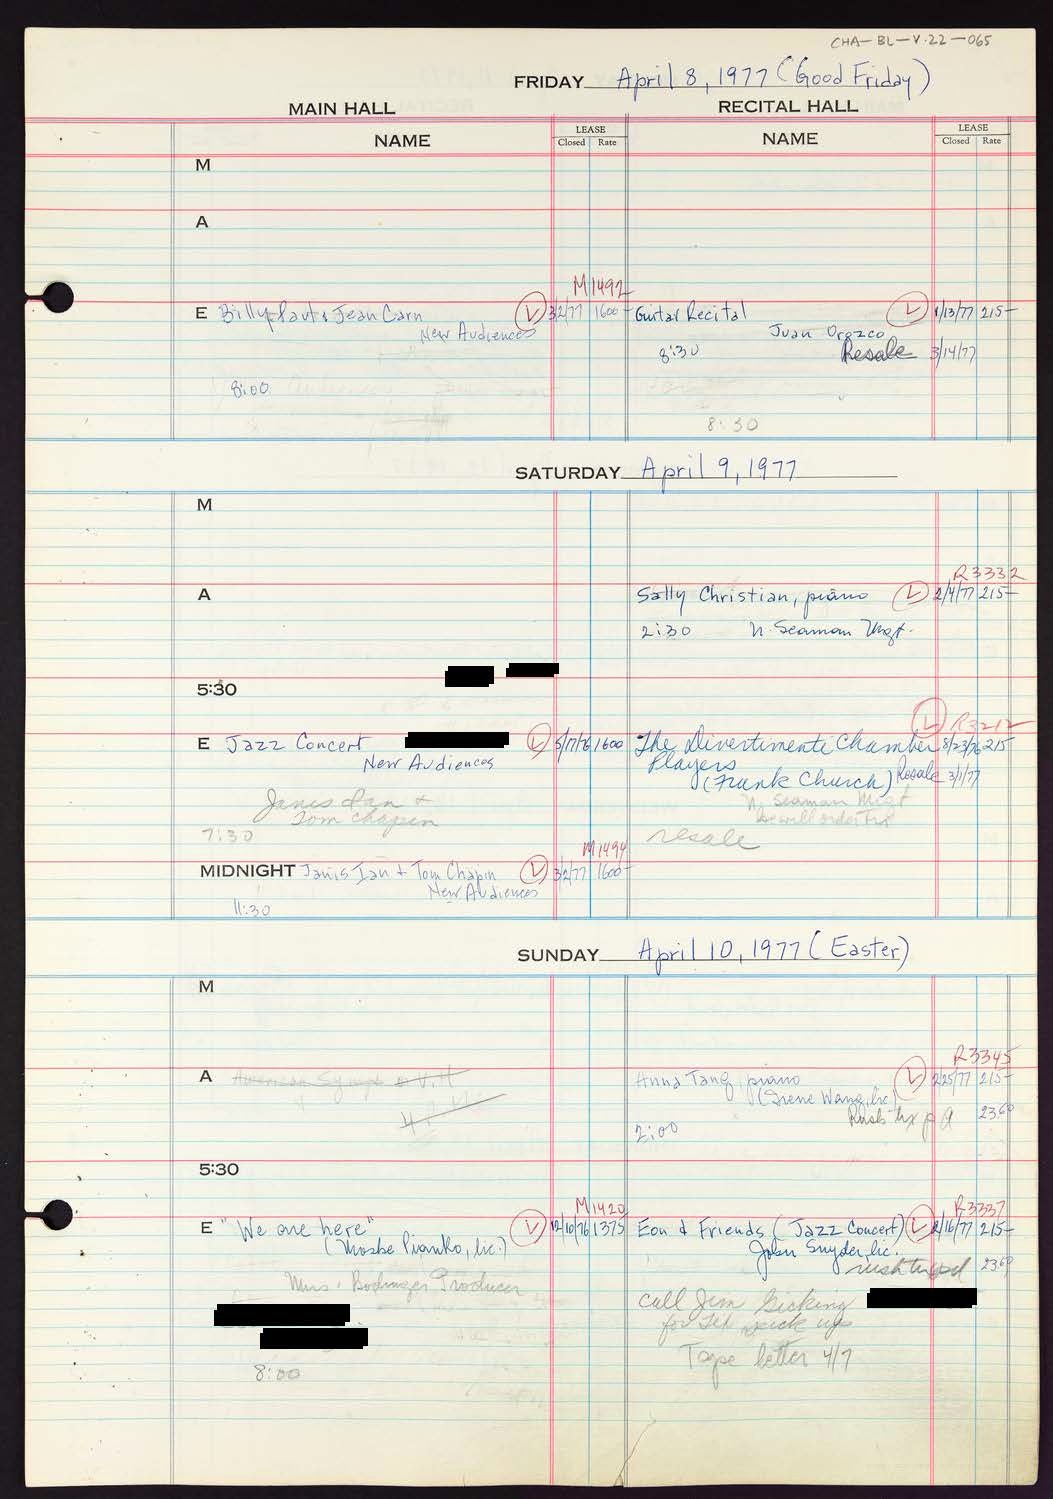 CHA-BL-V.22-065
FRIDAY April 8, 1977 (Good Friday)
MAIN HALL
RECITAL HALL
NAME
LEASE
Closed Rate
NAME
LEASE
Closed Rate
M
A
M1492
E Billy Paul & Jean Carn L 3/2/77 1600-
New Audiences
8:00
Guitar Recital L 1/13/77 215-
Juan Orozco
8:30 Resale 3/14/77
8:30
SATURDAY April 9, 1977
M
R3332
A
Sally Christian, piano L 2/4/77 215-
2:30 N. Seaman Mgt.
5:30
E Jazz Concert L 5/17/76 1600
New Audiences
Janis Ian +
Tom Chapin
7:30
L R3212
The Divertimenti Chamber 8/23/76 215-
Players
(Frank Church) Resale 3/1/77
N. Seaman Mgt
he will order Tx
resale
M1494
MIDNIGHT Janis Ian + Tom Chapin L 3/2/77 1600-
New Audiences
11:30
SUNDAY April 10, 1977 (Easter)
M
A American Symph
R3345
Anna Tang, piano L 2/25/77 215-
(Irene Wang, lic)
Rush tx pd 23.60
2:00
5:30
M1420
E "We are here" L 12/10/76 1375
(Moshe Pianko, lic.)
Mrs. Bodinger Producer
8:00
R3337
Eon & Friends (Jazz Concert) L 2/16/77 215-
John Snyder, lic.
rush tx pd 23.60
call Jim Gicking
for Tix pick up
Tape letter 4/7